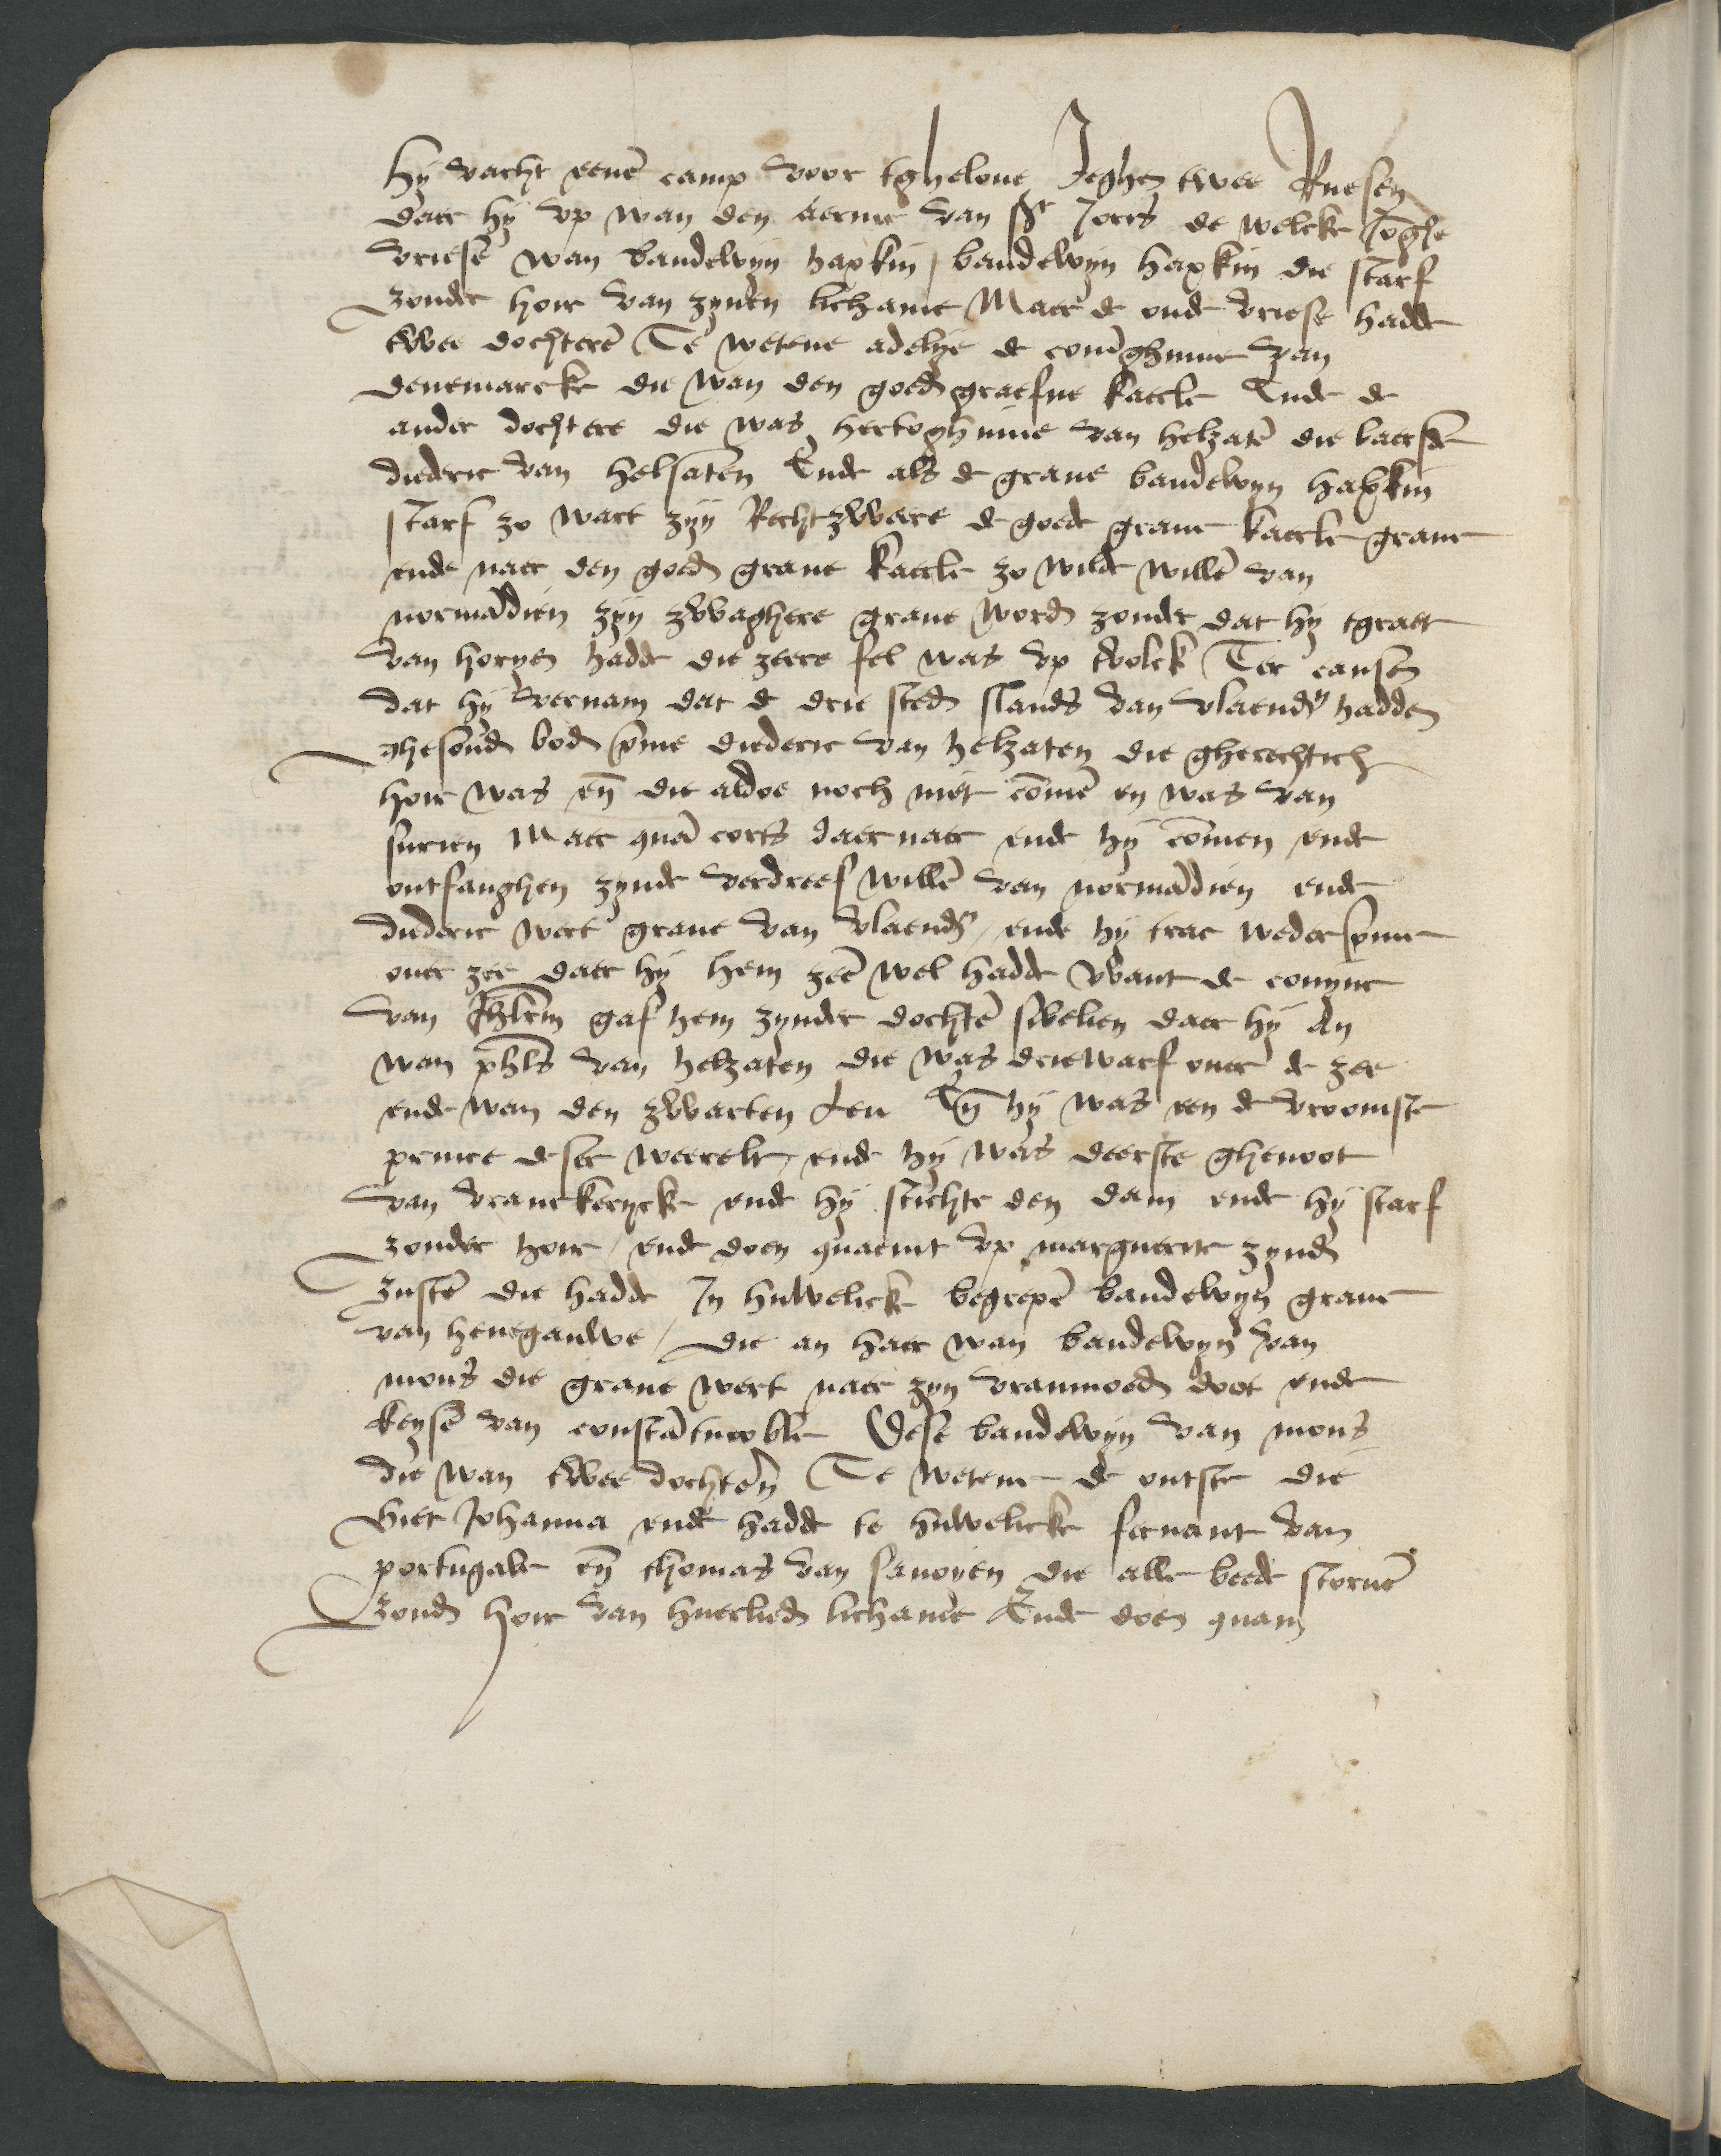 hy vacht eenē camp voor tghelove Jeghen twee Ruesen
daer hy up wan den aerme van Sᵗ Joris de welcke Joghe
vriese wan baudewyn hapkin / baudewyn hapkin die starf
zonder hoir van zynen lichame Maer de oude vriese hadde
twee dochterē Te wetene adelye de coninghinne van
denemarcke die wan den goedē graefve kaerle Ende de
ander dochtere die was hertoghinne van helzatē die baerde
diederic van helsaten Ende als de grave baudewyn hapkin
starf zo wart zyn Recht zweere de goede grave kaerle grave
ende naer den goedē grave kaerle zo wilde willē van
normādien zyn zwaghere grave wordē zonder dat hy tgraet
van horyen hadde die zeere fel was up tvolck Ter causen
dat hy vernam dat de drie stedē slands van vlaendrē hadden
ghesondē bodē omme diederic van helzaten die gherechtich
hoir was eñ die aldoe noch niet cōmē en was van
surien Maer quā corts daer naer ende hy cōmen ende
ontfanghen zynde verdreef willē van normādien ende
diederic wert grave van vlaendrē / ende hy trac weder omme
over zee daer hy hem zeē wel hadde Want de coninc
van Jhlrm gaf hem zynder dochtē sibelien daer hy An
wan phls van helzaten die was driewarf over de zee
ende wan den zwarten Leu Eñ hy was een de vroomste
prince deser weerelt / ende hy was deerste ghenoot
van vranckerycke ende hy stichte den dam ende hy starf
zonder hoir / ende doen quaemt up marguerite zyndē
zustē die hadde In huwelicke begrepē baudewyn grave
van henegauwe / die an haer wan baudewyn van
mons die grave wert naer zyn vraumoedē doot ende
keysē van constātinoble Dese baudewyn van mons
die wan twee dochtēn Te wetene de outste die
hiet Johanna ende hadde te huwelicke fernant van
portugale eñ thomas van savoyen die alle beede storvē
zondē hoir van huerliedē lichame Ende doen quam